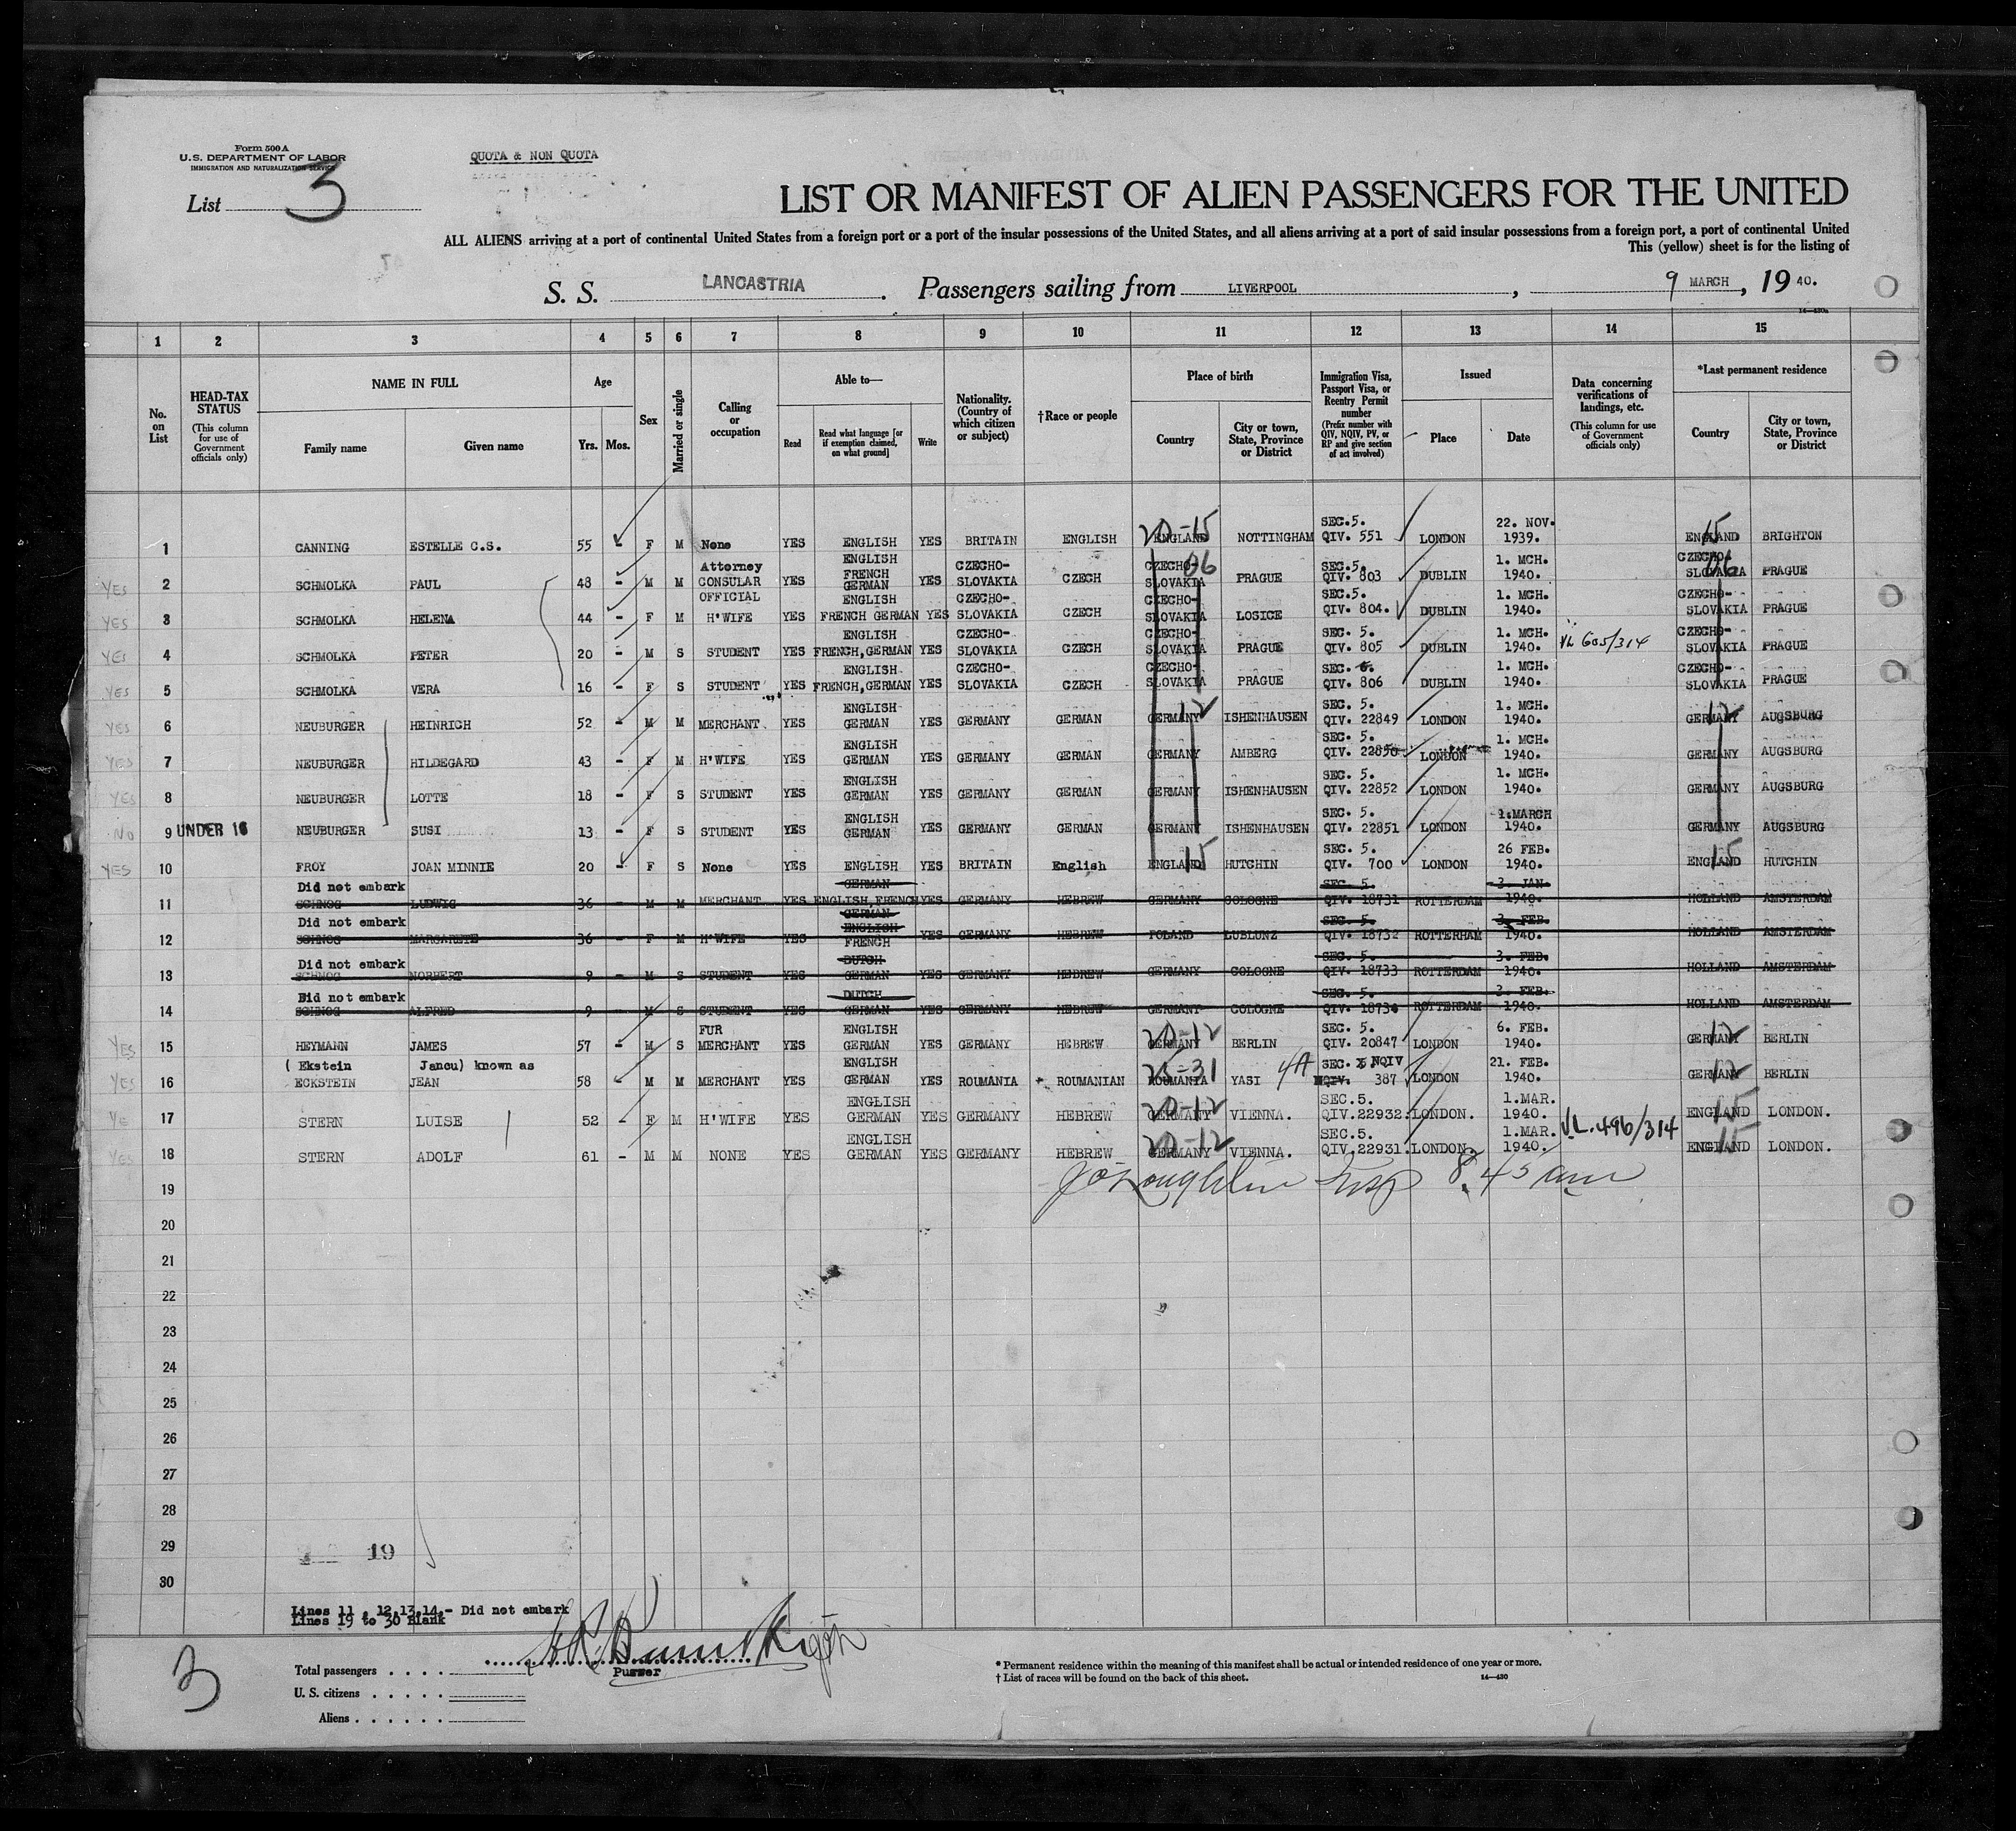 Form 500 A
U.S. DEPARTMENT OF LABOR
IMMIGRATION AND NATURALIZATION SERVICE
QUOTA & NON QUOTA
List 3
LIST OR MANIFEST OF ALIEN PASSENGERS FOR THE UNITED
ALL ALIENS arriving at a port of continental United States from a foreign port or a port of the insular possessions of the United States, and all aliens arriving at a port of said insular possessions from a foreign port, a port of continental United
This (yellow) sheet is for the listing of
S. S. LANCASTRIA. Passengers sailing from LIVERPOOL, 9 MARCH, 19 40.
14—430a
1 2 3 4 5 6 7 8 9 10 11 12 13 14 15
No. on List
HEAD-TAX STATUS (This column for use of Government officials only)
NAME IN FULL
Family name Given name
Age
Yrs. Mos.
Sex
Married or single
Calling or occupation
Able to—
Read Read what language [or if exemption claimed, on what ground] Write
Nationality. (Country of which citizen or subject)
†Race or people
Place of birth
Country City or town, State, Province or District
Immigration Visa, Passport Visa, or Reentry Permit number (Prefix number with QIV, NQIV, PV, or RP and give section of act involved)
Issued
Place Date
Data concerning verifications of landings, etc. (This column for use of Government officials only)
*Last permanent residence
Country City or town, State, Province or District
1 CANNING ESTELLE C.S. 55 - F M None YES ENGLISH YES BRITAIN ENGLISH 20-15 ENGLAND NOTTINGHAM SEC.5. QIV. 551 LONDON 22. NOV. 1939. 15 ENGLAND BRIGHTON
YES 2 SCHMOLKA PAUL 48 - M M Attorney CONSULAR OFFICIAL YES ENGLISH FRENCH GERMAN YES CZECHO-SLOVAKIA CZECH 06 CZECHO-SLOVAKIA PRAGUE SEC.5. QIV. 803 DUBLIN 1. MCH. 1940. 06 CZECHO-SLOVAKIA PRAGUE
YES 3 SCHMOLKA HELENA 44 - F M H'WIFE YES ENGLISH FRENCH GERMAN YES CZECHO-SLOVAKIA CZECH CZECHO-SLOVAKIA LOSICE SEC.5. QIV. 804. DUBLIN 1. MCH. 1940. CZECHO-SLOVAKIA PRAGUE
YES 4 SCHMOLKA PETER 20 - M S STUDENT YES ENGLISH FRENCH, GERMAN YES CZECHO-SLOVAKIA CZECH CZECHO-SLOVAKIA PRAGUE SEC. 5. QIV. 805 DUBLIN 1. MCH. 1940. VL 605/314 CZECHO-SLOVAKIA PRAGUE
YES 5 SCHMOLKA VERA 16 - F S STUDENT YES ENGLISH FRENCH, GERMAN YES CZECHO-SLOVAKIA CZECH CZECHO-SLOVAKIA PRAGUE SEC. QIV. 806 DUBLIN 1. MCH. 1940. CZECHO-SLOVAKIA PRAGUE
YES 6 NEUBURGER HEINRICH 52 - M M MERCHANT YES ENGLISH GERMAN YES GERMANY GERMAN 12 GERMANY ISHENHAUSEN SEC. 5. QIV. 22849 LONDON 1. MCH. 1940. 12 GERMANY AUGSBURG
YES 7 NEUBURGER HILDEGARD 43 - F M H'WIFE YES ENGLISH GERMAN YES GERMANY GERMAN GERMANY AMBERG SEC. 5. QIV. 22850 LONDON 1. MCH. 1940. GERMANY AUGSBURG
YES 8 NEUBURGER LOTTE 18 - F S STUDENT YES ENGLISH GERMAN YES GERMANY GERMAN GERMANY ISHENHAUSEN SEC. 5. QIV. 22852 LONDON 1. MCH. 1940. GERMANY AUGSBURG
NO 9 UNDER 16 NEUBURGER SUSI 13 - F S STUDENT YES ENGLISH GERMAN YES GERMANY GERMAN GERMANY ISHENHAUSEN SEC. 5. QIV. 22851 LONDON 1.MARCH 1940. GERMANY AUGSBURG
YES 10 FROY JOAN MINNIE 20 - F S None YES ENGLISH YES BRITAIN English 15 ENGLAND HUTCHIN SEC. 5. QIV. 700 LONDON 26 FEB. 1940. 15 ENGLAND HUTCHIN
Did not embark
11 SCHNOG LUDWIG 36 - M M MERCHANT YES GERMAN ENGLISH, FRENCH YES GERMANY HEBREW GERMANY COLOGNE SEC. 5. QIV. 18731 ROTTERDAM 3. JAN. 1940. HOLLAND AMSTERDAM
Did not embark
12 SCHNOG MARGARETE 36 - F M H'WIFE YES GERMAN ENGLISH FRENCH YES GERMANY HEBREW POLAND LUBLUNZ SEC. 5. QIV. 18732 ROTTERHAM 3. FEB. 1940. HOLLAND AMSTERDAM
Did not embark
13 SCHNOG NORBERT 9 - M S STUDENT YES DUTCH GERMAN YES GERMANY HEBREW GERMANY COLOGNE SEC. 5. QIV. 18733 ROTTERDAM 3. FEB. 1940. HOLLAND AMSTERDAM
Did not embark
14 SCHNOG ALFRED 9 - M S STUDENT YES DUTCH GERMAN YES GERMANY HEBREW GERMANY COLOGNE SEC. 5. QIV. 18734 ROTTERDAM 3. FEB. 1940. HOLLAND AMSTERDAM
YES 15 HEYMANN JAMES 57 - M S FUR MERCHANT YES ENGLISH GERMAN YES GERMANY HEBREW 20-12 GERMANY BERLIN SEC. 5. QIV. 20847 LONDON 6. FEB. 1940. 12 GERMANY BERLIN
( Ekstein Jancu) known as
YES 16 ECKSTEIN JEAN 58 M M MERCHANT YES ENGLISH GERMAN YES ROUMANIA ROUMANIAN 25-31 ROUMANIA YASI 4A SEC. NQIV QIV. 387 LONDON 21. FEB. 1940. 12 GERMANY BERLIN
Ye 17 STERN LUISE 52 - F M H'WIFE YES ENGLISH GERMAN YES GERMANY HEBREW 20-12 GERMANY VIENNA. SEC.5. QIV.22932. LONDON. 1.MAR. 1940. V.L. 496/314 15 ENGLAND LONDON.
YES 18 STERN ADOLF 61 - M M NONE YES ENGLISH GERMAN YES GERMANY HEBREW 20-12 GERMANY VIENNA. SEC.5. QIV.22931. LONDON. 1.MAR. 1940. 15 ENGLAND LONDON.
19 Insp 8.45 am
20
21
22
23
24
25
26
27
28
29 19
30
Lines 11, 12,13,14,- Did not embark
Lines 19 to 30 Blank
3
Purser
Total passengers
U. S. citizens
Aliens
* Permanent residence within the meaning of this manifest shall be actual or intended residence of one year or more.
† List of races will be found on the back of this sheet.
14—430